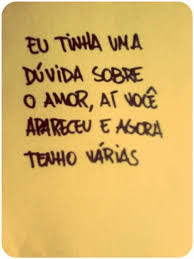 EU TINHA UMA
DÚVIDA SOBRE
O AMOR, AÍ VOCÊ
APARECEU E AGORA
TENHO VÁRIAS